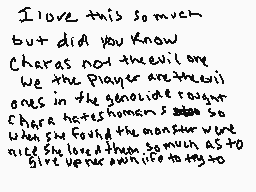 I love this so much
but did you know
Charas not the evil one
We the player are the evil
ones in the genocide
Chara hates humans so
when she found the monster were
nice she loved them so much as to
give up her own life to try to